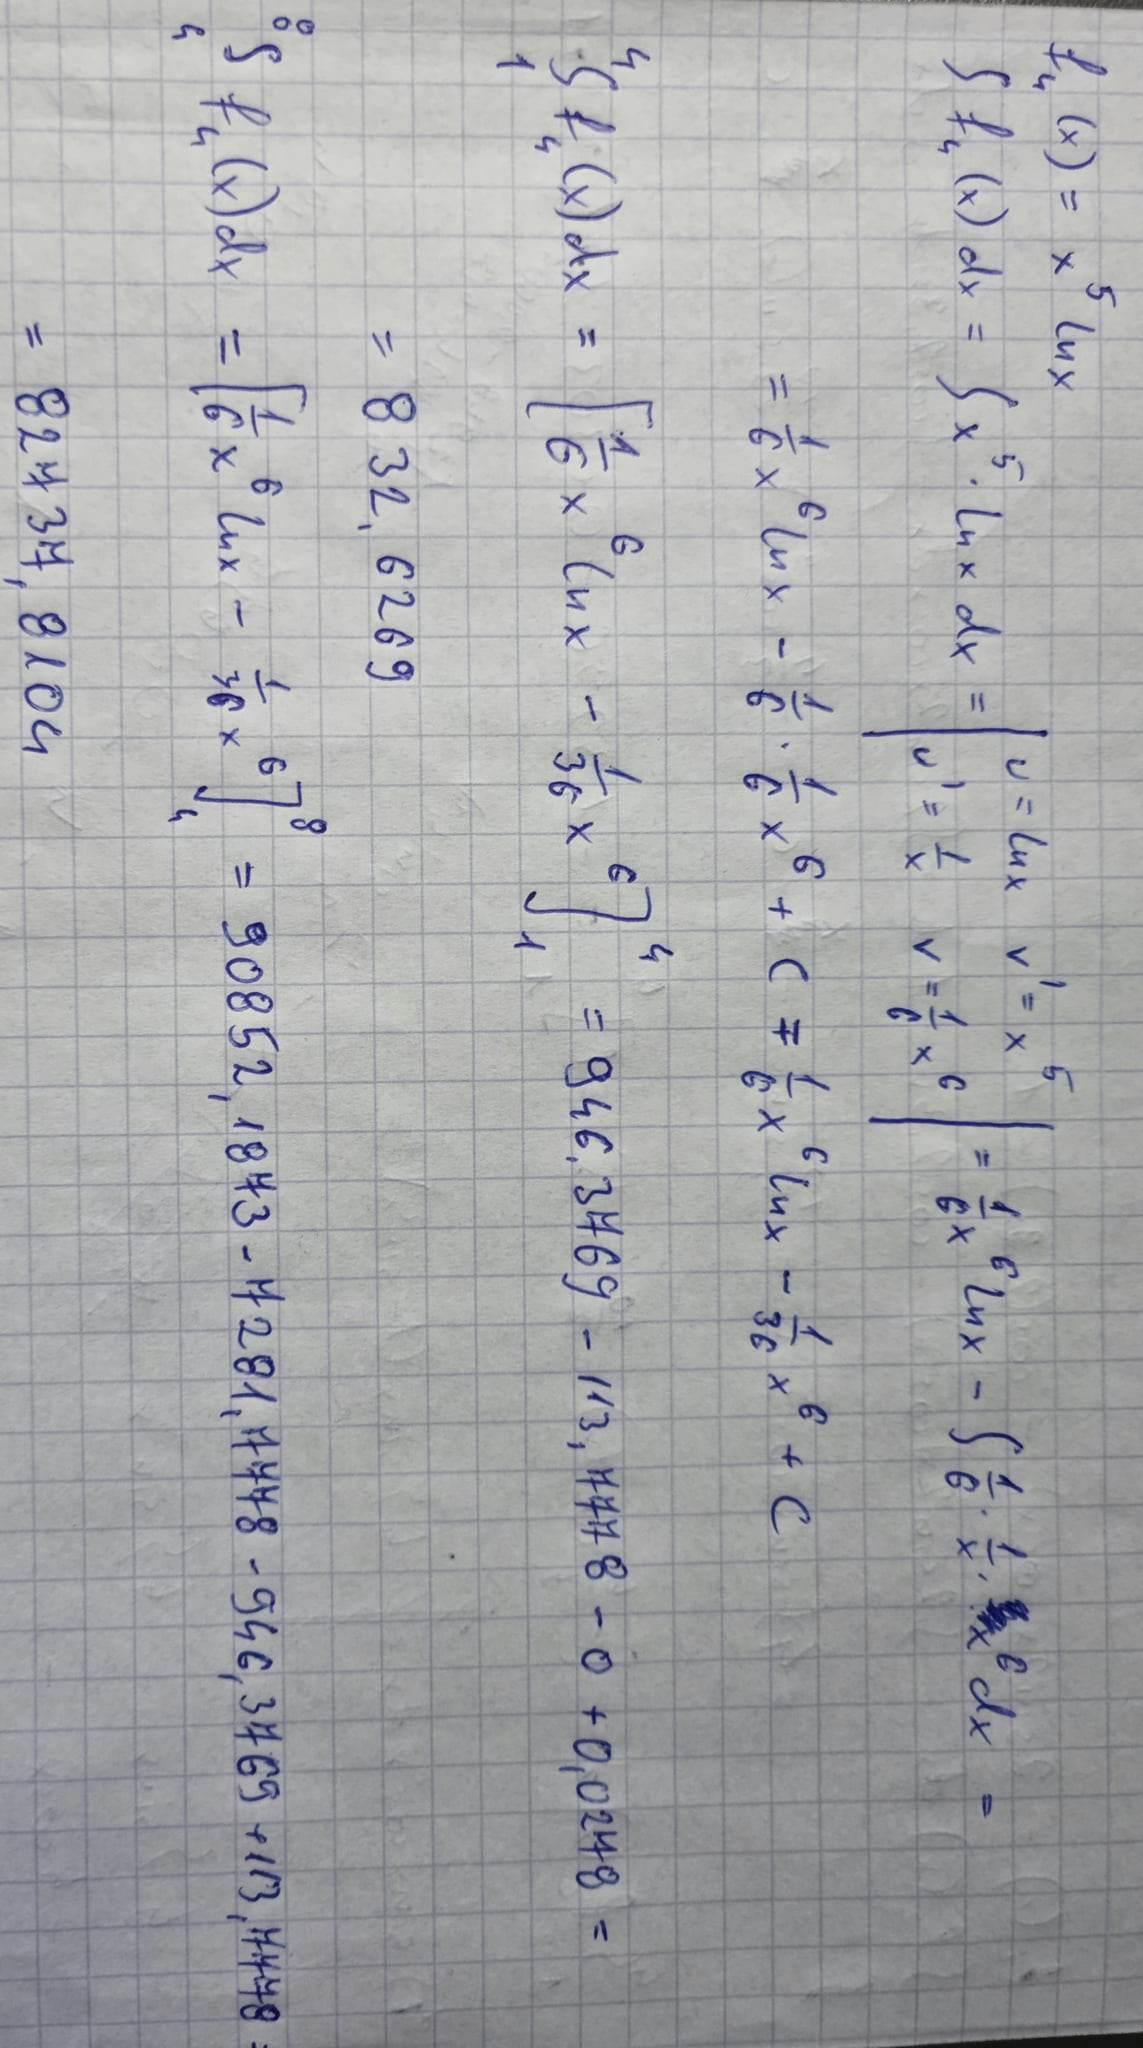 f₄(x) = x⁵ lnx
∫ f₄(x) dx = ∫ x⁵ · ln x dx = | u = lnx v' = x⁵ u' = 1/x v = 1/6 x⁶ | = 1/6 x⁶ lnx - ∫ 1/6 · 1/x · x⁶ dx =
= 1/6 x⁶ lnx - 1/6 · 1/6 x⁶ + C = 1/6 x⁶ lnx - 1/36 x⁶ + C
∫₁⁴ f₄(x) dx = [1/6 x⁶ lnx - 1/36 x⁶]₁⁴ = 946,3769 - 113,7778 - 0 + 0,0278 =
= 832,6269
∫₄⁸ f₄(x) dx = [1/6 x⁶ lnx - 1/36 x⁶]₄⁸ = 90852,1873 - 7281,7778 - 946,3769 + 113,7778 =
= 82737,8104